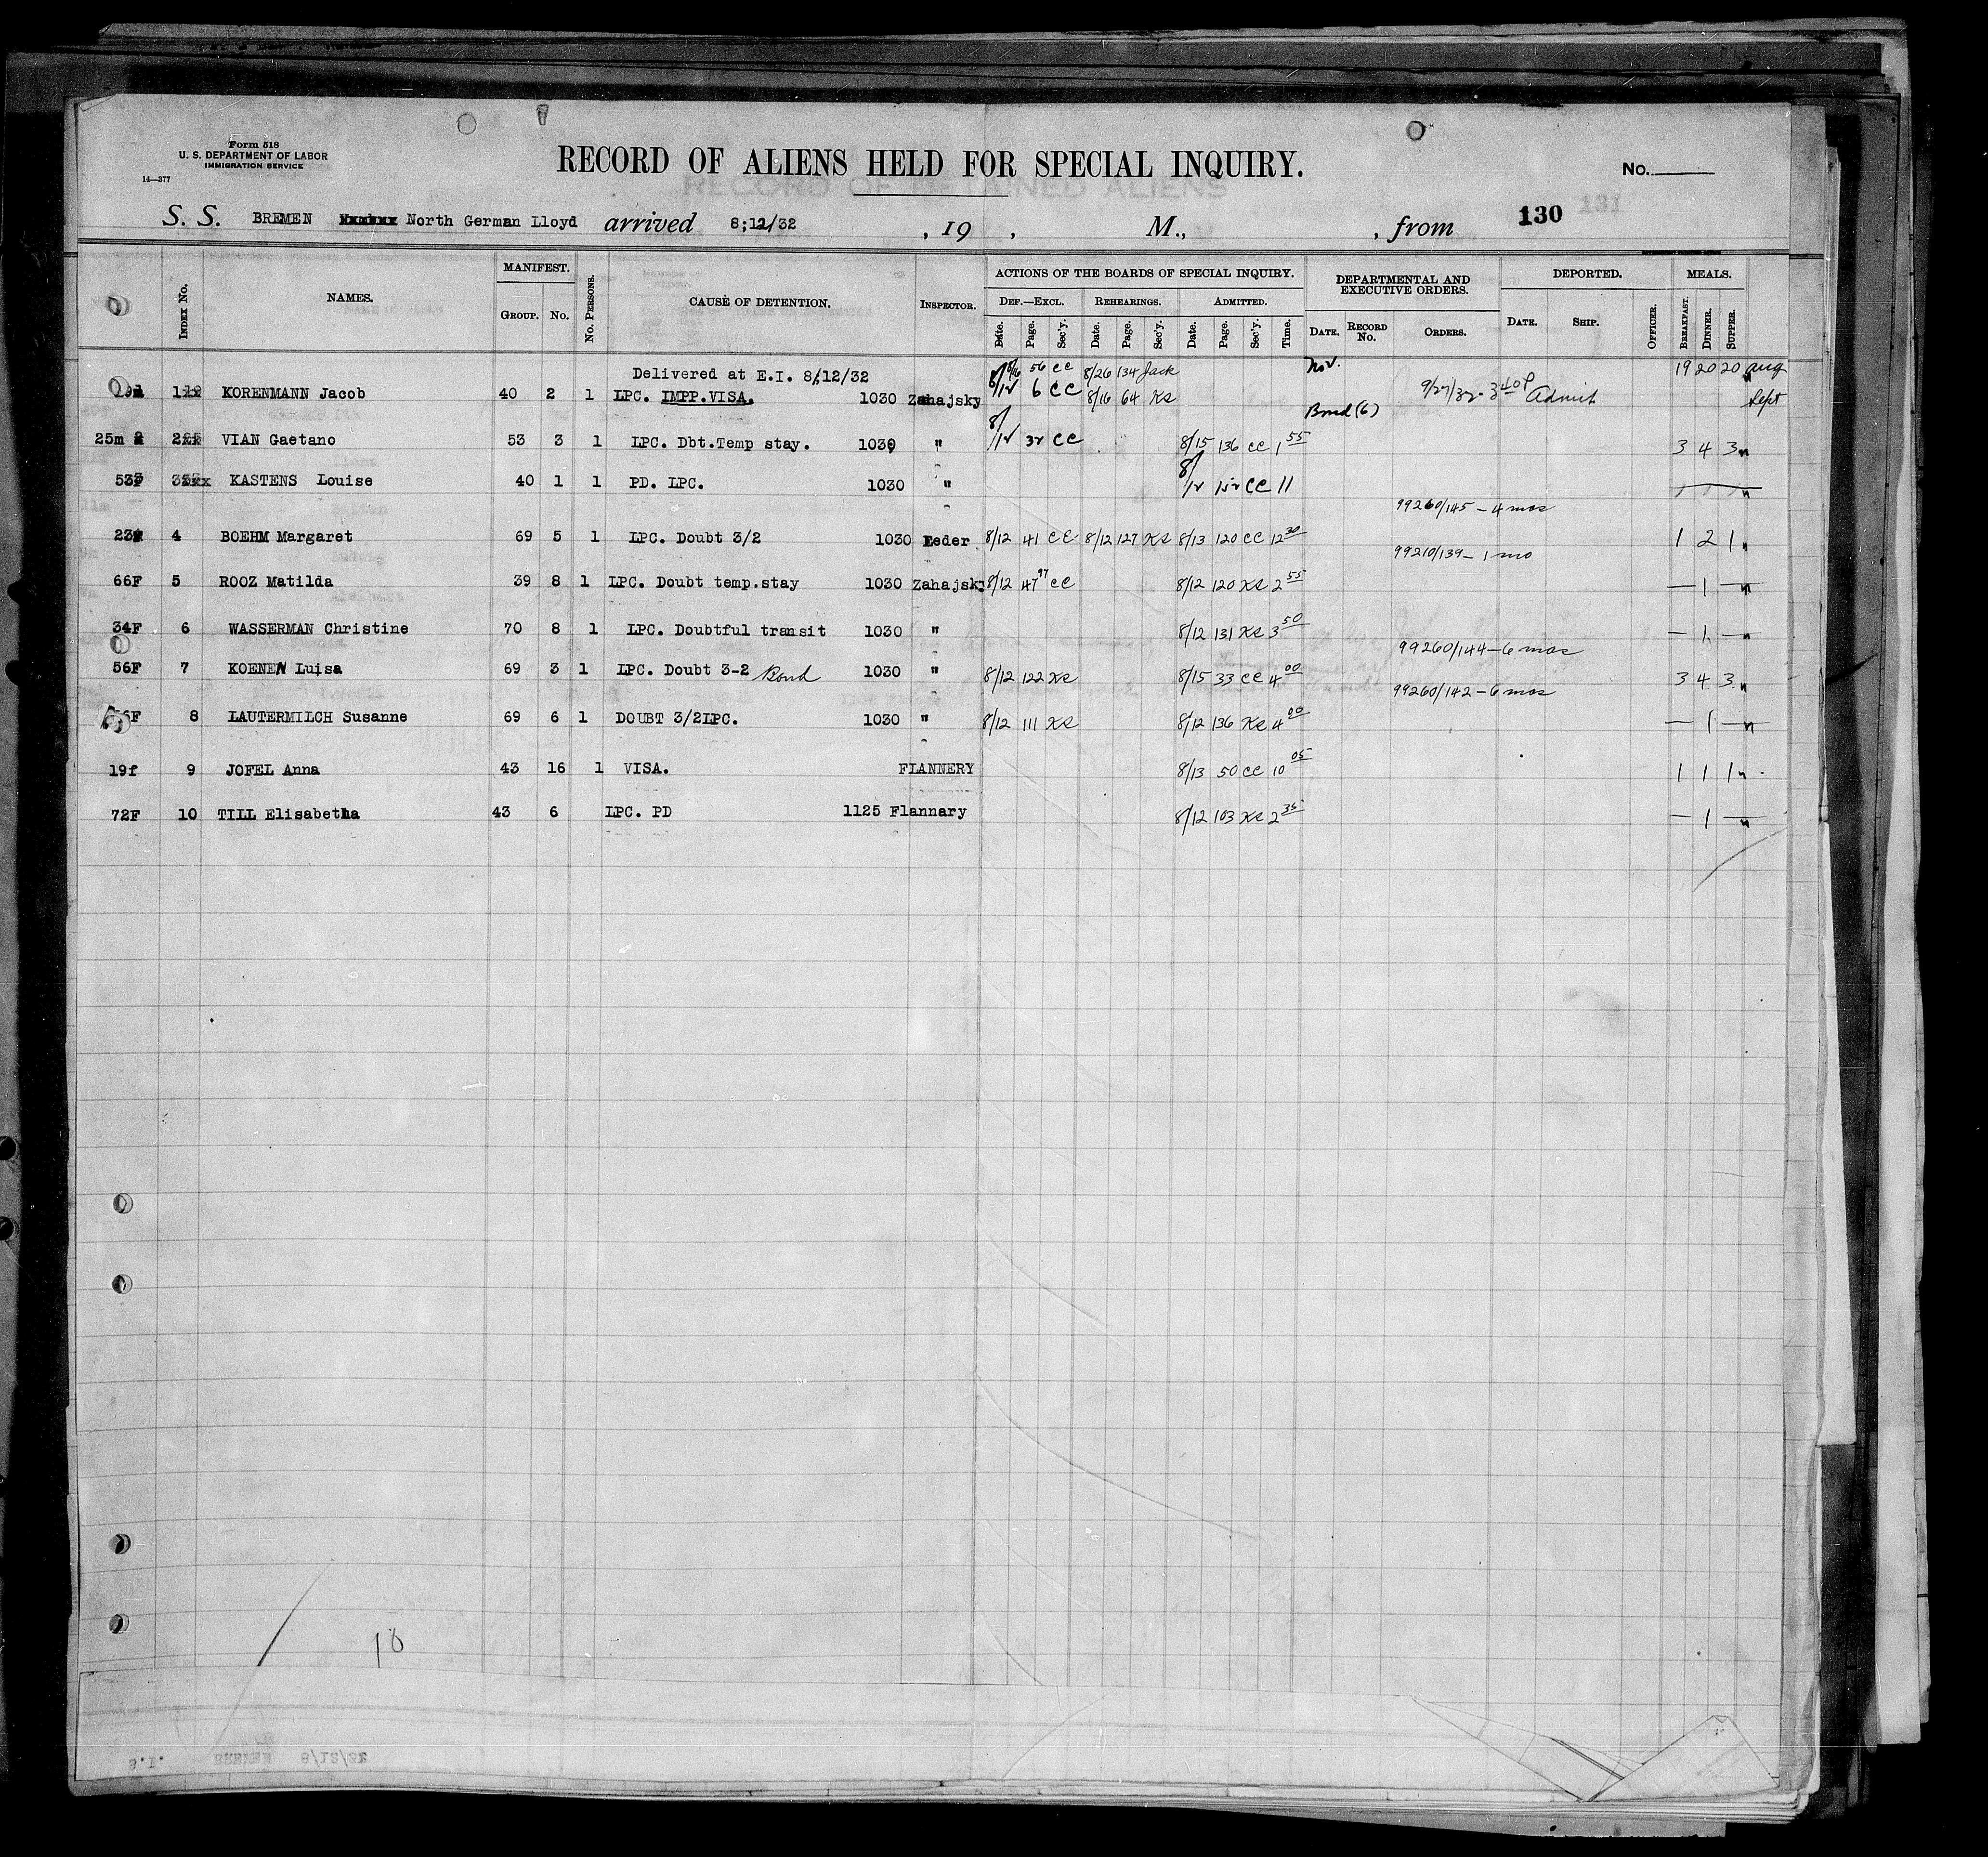 Form 518
U. S. DEPARTMENT OF LABOR
IMMIGRATION SERVICE
14—377
RECORD OF ALIENS HELD FOR SPECIAL INQUIRY.
No.
S. S. BREMEN North German Lloyd arrived 8;12/32 , 19 , M., , from 130 131
INDEX No. NAMES. MANIFEST. GROUP. No. No. PERSONS. CAUSE OF DETENTION. INSPECTOR. ACTIONS OF THE BOARDS OF SPECIAL INQUIRY. DEF.—EXCL. Date. Page. Sec'y. REHEARINGS. Date. Page. Sec'y. ADMITTED. Date. Page. Sec'y. Time. DEPARTMENTAL AND EXECUTIVE ORDERS. DATE. RECORD No. ORDERS. DEPORTED. DATE. SHIP. OFFICER. MEALS. BREAKFAST. DINNER. SUPPER.
Delivered at E.I. 8/12/32 8/16 56 CC 8/26 134 Jack Nov. 19 20 20 Aug
KORENMANN Jacob 40 2 1 LPC. IMPP.VISA. 1030 Zahajsky 8/12 6 CC 8/16 64 KS 9/27/32 - 3 40 P Admit Sept
Bond (6)
25m VIAN Gaetano 53 3 1 LPC. Dbt.Temp stay. 1030 " 8/12 32 CC 8/15 136 CC 1 55 3 4 3
KASTENS Louise 40 1 1 PD. LPC. 1030 " 8/12 152 CC 11
99260/145 - 4 mos
4 BOEHM Margaret 69 5 1 LPC. Doubt 3/2 1030 Leder 8/12 41 CC 8/12 127 KS 8/13 120 CC 12 30 1 2 1
99210/139 - 1 mo
66F 5 ROOZ Matilda 39 8 1 LPC. Doubt temp.stay 1030 Zahajsky 8/12 47 97 CC 8/12 120 KS 2 55 — 1 —
34F 6 WASSERMAN Christine 70 8 1 LPC. Doubtful transit 1030 " 8/12 131 KS 3 50 — 1 —
99260/144 - 6 mos
56F 7 KOENEN Luisa 69 3 1 LPC. Doubt 3-2 Bond 1030 " 8/12 122 KS 8/15 33 CC 4 00 3 4 3
99260/142 - 6 mos
8 LAUTERMILCH Susanne 69 6 1 DOUBT 3/2LPC. 1030 " 8/12 111 KS 8/12 136 KS 4 00 — 1 —
19f 9 JOFEL Anna 43 16 1 VISA. FLANNERY 8/13 50 CC 10 05 1 1 1
72F 10 TILL Elisabetha 43 6 LPC. PD 1125 Flannary 8/12 103 KS 2 35 — 1 —
10